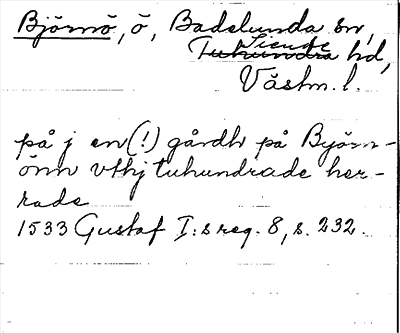 Björnö, ö, Badelunda sn,
Siende
Tuhundra hd,
Västm. l.
på j en (!) gårdh på Byörn-
önn vthj tuhundrade her-
rade
1533 Gustaf I:s reg. 8, s. 232.